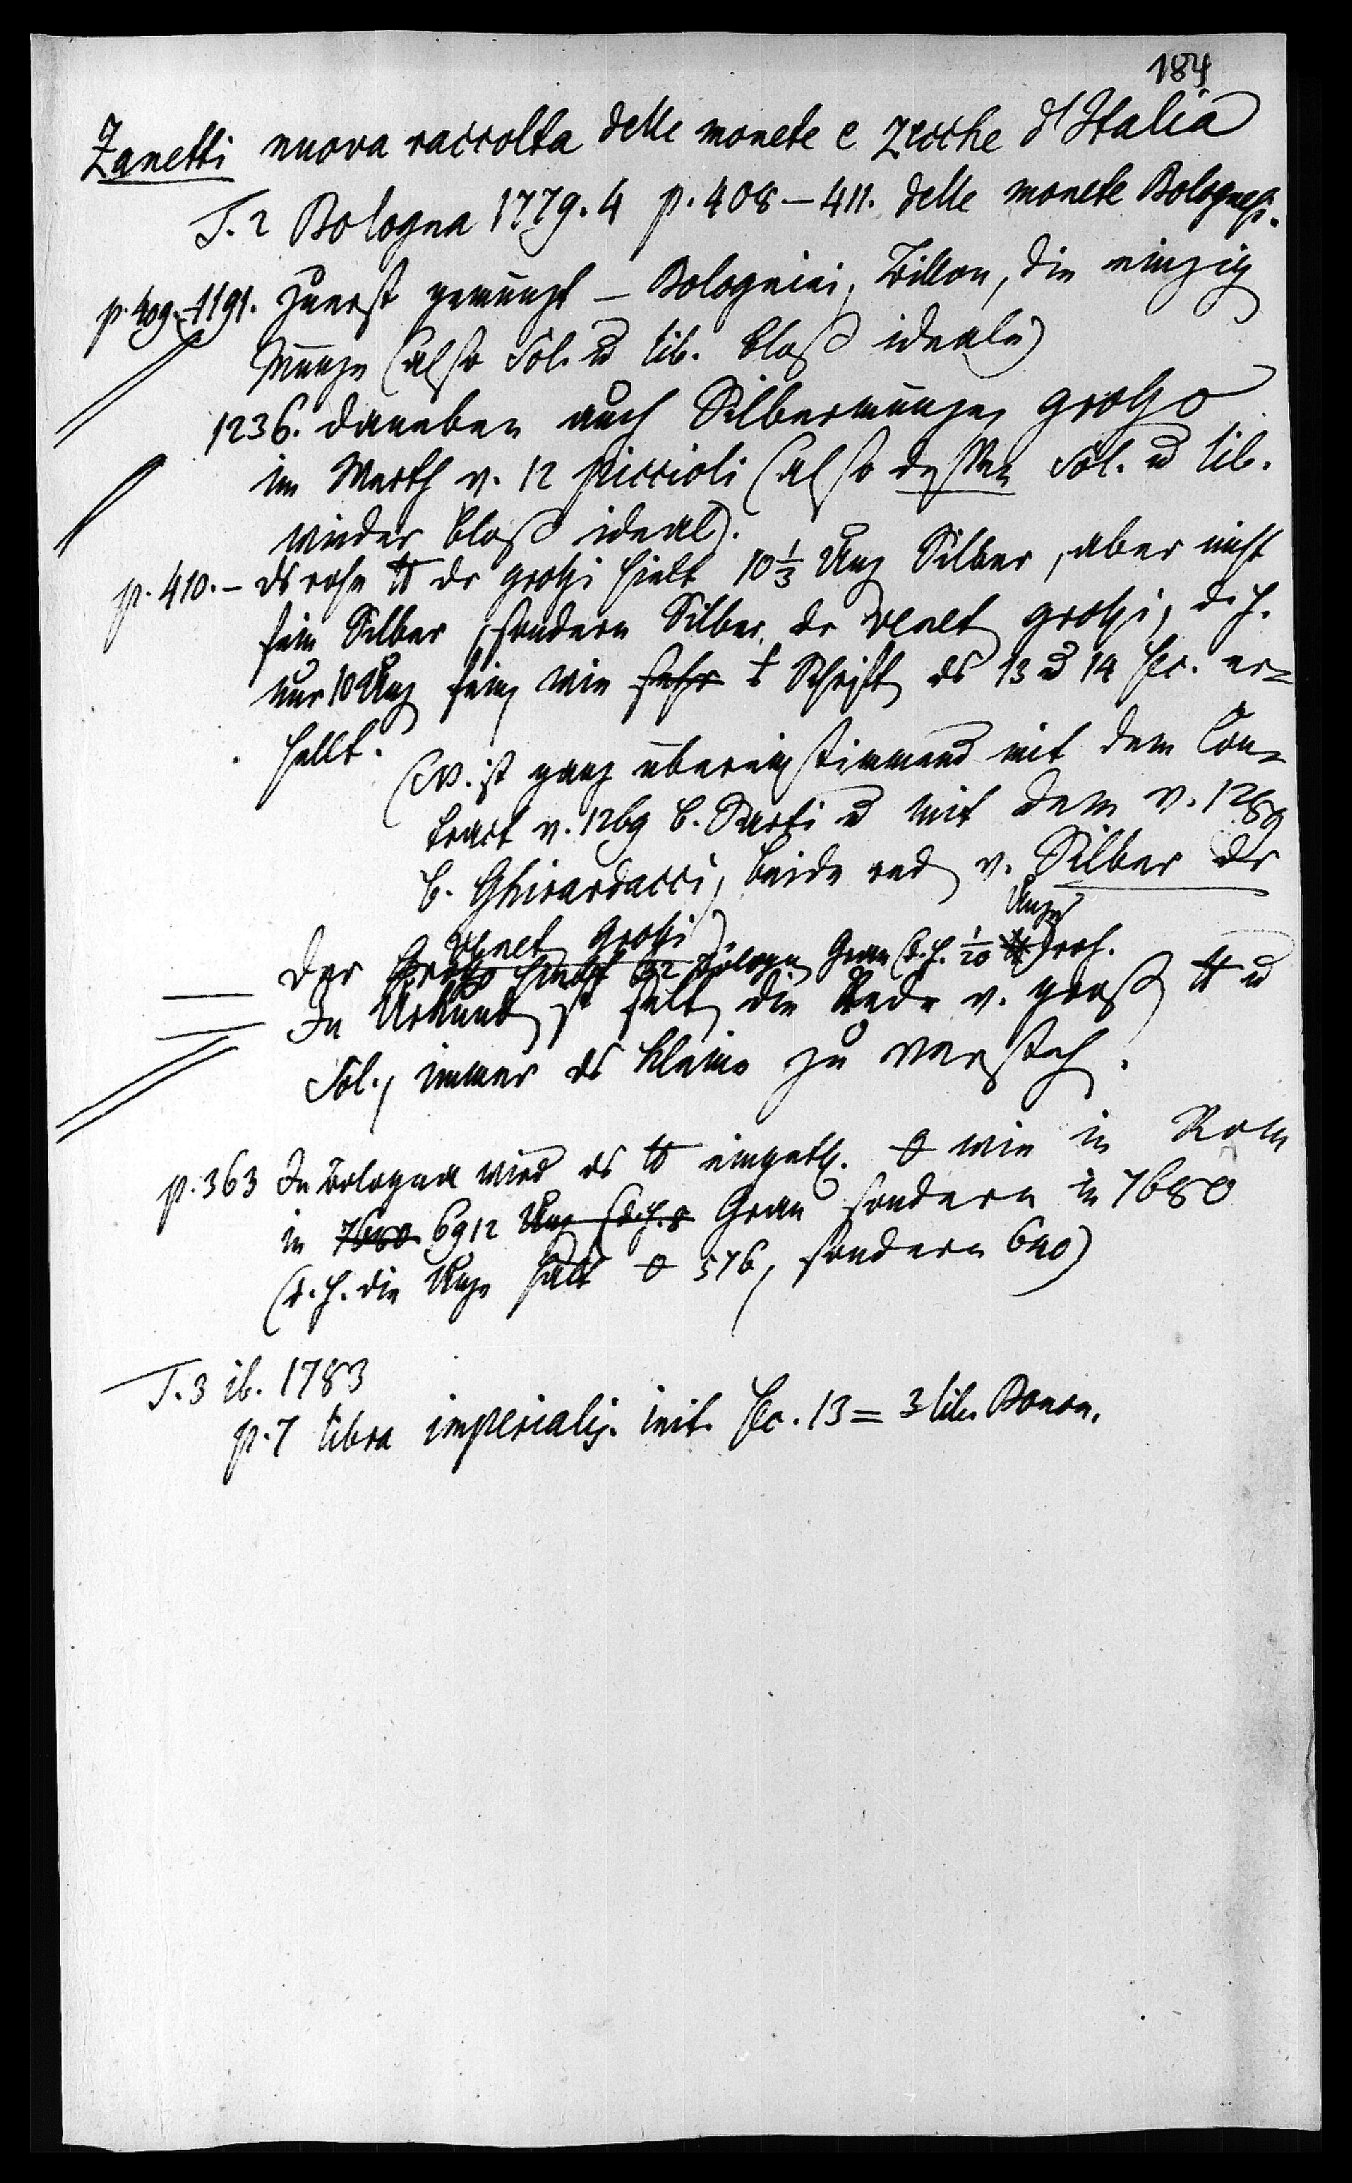 184
Zanetti nuova raccolta delle monete e Zecche d'Italia
T. 2 Bologna 1779. 4 p. 408–411. delle monete Bolognesi.
p. 409. – 1191. zuerst gemünzt – Bolognini, Billon, die einzig
Münze (also Sol. u lib. bloß ideale)
1236. daneben auch Silbermünze, grosso
im Werth v. 12 piccioli (also dessen Sol. u lib.
wieder bloß ideal).
p. 410. – ds rohe ℔ dr grossi hielt 10 1/3 Unz Silber, aber nicht
fein Silber, sondern Silber dr Venet grossi, d. h.
nur 10 Unz fein wie sehr Schrift ds 13 u 14 sec. er=
hellt.
(NB. ist ganz übereinstimmend mit dem Con=
tract v. 1269 b. Sarti u mit dem v. 1289
b. Ghirardacci, beide red v. Silber dr
Venet grossi)
Unze
Der Grosso hielt 32 Bologn Gran (d. h. 1/20 ℔) roh.
In Urkund ist selt die Rede v. groß ℔ u
Sol., immer ds kleine zu versteh.
p. 363 In Bologna wird ds ℔ eingeth. 0 wie in Rom
in 7680 6912 Unz (d. h. 8 Gran sondern in 7680
(d. h. die Unze hält 0 576, sondern 640)
T. 3 ib. 1783
p. 7 libra imperialis. init. sec. 13 = 3 lib. Bonon.